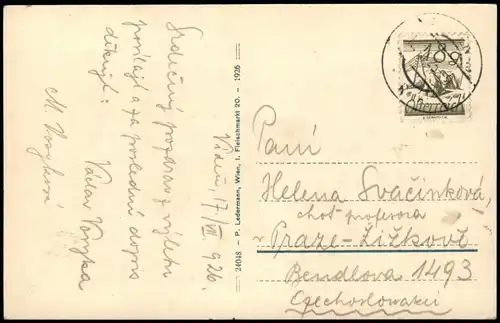 Vídeň, 17./VII. 926.
Srdečný pozdrav z výletu
posílají a za poslední dopis
děkují:
Václav Vosyka
M. Vosyková
24048 - P. Ledermann, Wien, I. Fleischmarkt 20. - 1926
18g
Österreich
Paní
Helena Svačinková,
choť profesora
v Praze-Žižkově
Bendlova 1493
Czechoslowakei